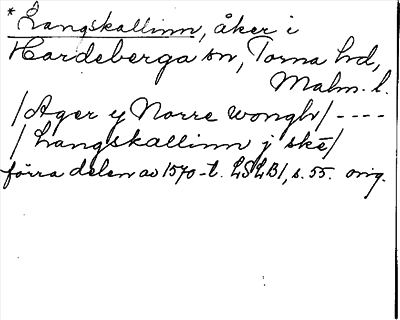 * Långskallinn, åker i
Hardeberga sn, Torna hd,
Malm. l.
/Ager y Norre wongh/ ----
/ Langskallinn j skē/
förra delen av 1570-t. LSLB1, s. 55. orig.